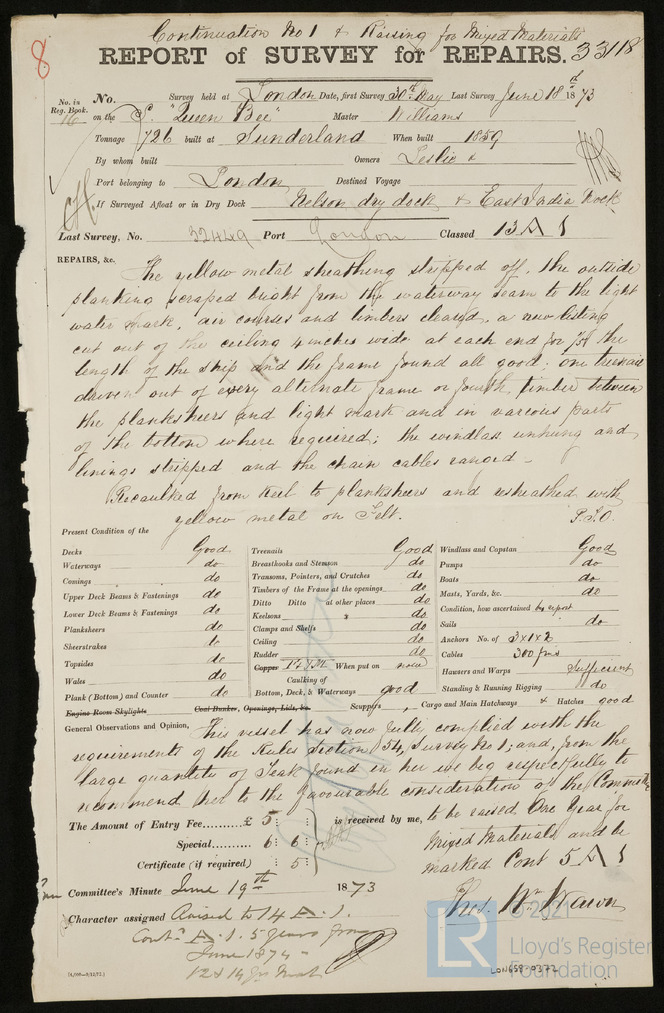 Continuation No 1 & Raising for Mixed Materials
8 REPORT of SURVEY for REPAIRS. 33118
No. in Reg. Book. No. Survey held at London Date, first Survey 30th May Last Survey June 18d 1873
76 on the S. "Queen Bee" Master Williams
Tonnage 726 built at Sunderland When built 1859
By whom built Owners Leslie &
Port belonging to London Destined Voyage
If Surveyed Afloat or in Dry Dock Nelson dry dock & East India Dock
Last Survey, No. 32449 Port London Classed 13 A 1
REPAIRS, &c. The yellow metal sheathing stripped off, the outside
planking scraped bright from the waterway seam to the light
water mark, air courses and limbers cleared, a new listing
cut out of the ceiling 4 inches wide at each end for 1/5th the
length of the ship and the frame found all good; one treenail
driven out of every alternate frame or fourth timber between
the planksheers and light mark and in various parts
of the bottom where required; the windlass unhung and
linings stripped and the chain cables ranged –
Recaulked from keel to planksheers and resheathed with
yellow metal on Felt. P.T.O.
Present Condition of the
Decks Good
Waterways do
Comings do
Upper Deck Beams & Fastenings do
Lower Deck Beams & Fastenings do
Planksheers do
Sheerstrakes do
Topsides do
Wales do
Plank (Bottom) and Counter do
Engine Room Skylights Coal Bunker, Openings, Lids, &c.
Treenails Good
Breasthooks and Stemson do
Transoms, Pointers, and Crutches do
Timbers of the Frame at the openings do
Ditto Ditto at other places do
Keelsons do
Clamps and Shelfs do
Ceiling do
Rudder do
Copper Y.M. When put on now
Caulking of
Bottom, Deck, & Waterways good
Scuppers, Cargo and Main Hatchways & Hatches good
Windlass and Capstan Good
Pumps do
Boats do
Masts, Yards, &c. do
Condition, how ascertained by report
Sails do
Anchors No. of 3x1x2
Cables 300 fms
Hawsers and Warps Sufficient
Standing & Running Rigging do
General Observations and Opinion, This vessel has now fully complied with the
requirements of the Rules Section 54, Survey No 1; and, from the
large quantity of Teak found in her we beg respectfully to
recommend her to the favourable consideration of the Committee
The Amount of Entry Fee £ 5 : : is received by me, to be raised One Year for
Special 6 : 6 : Mixed Materials and be
Certificate (if required) : 5 : marked Cont 5 A 1
Committee's Minute June 19th 1873
Character assigned Raised to 14 A. 1.
Contd A. 1. 5 years from
June 1874 -
Thos. Wm
© 2021
LR
Lloyd's Register
Foundation
LON658-0372